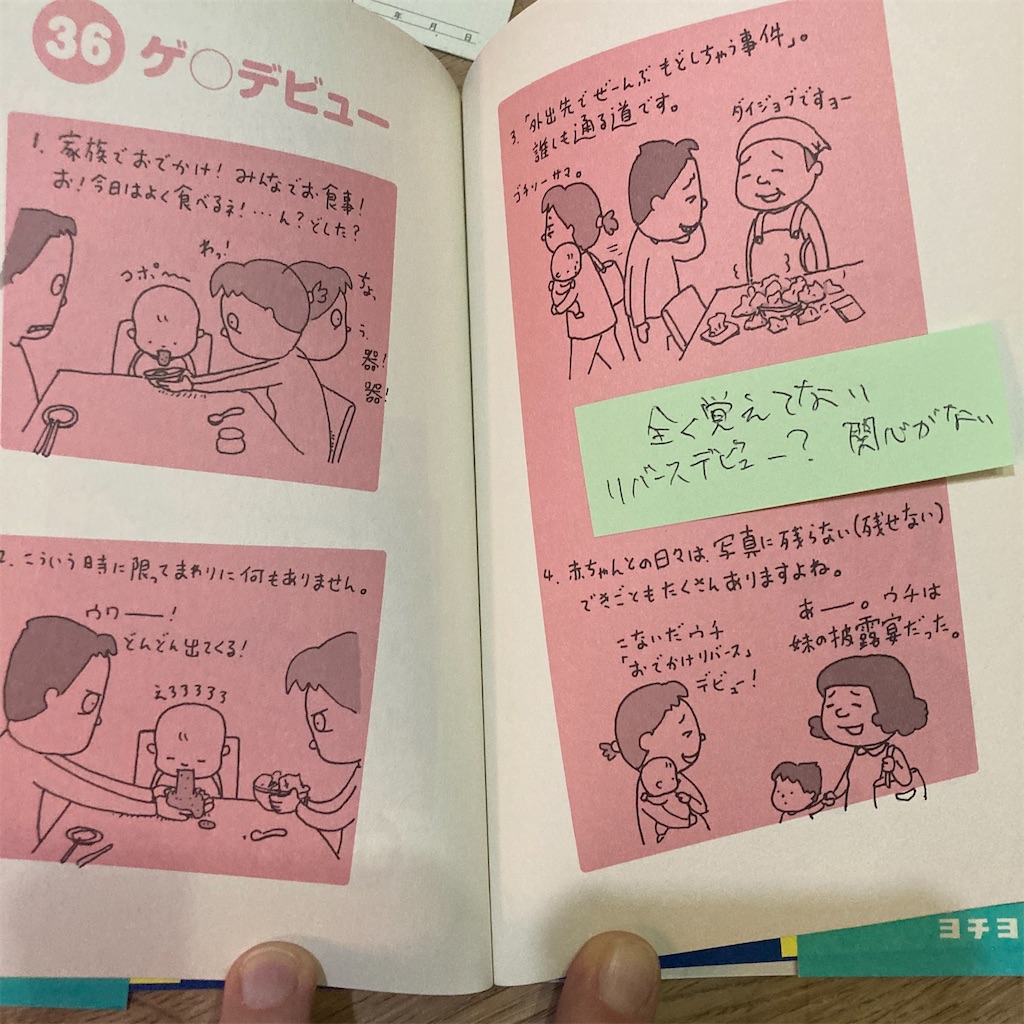 年 月 日
36 ゲ○デビュー
1. 家族でおでかけ! みんなでお食事!
お!今日はよく食べるネ!…ん?どした?
わっ!
コポ〜
な、
う、
器!
器!
2. こういう時に限ってまわりに何もありません。
ウワー!
どんどん出てくる!
えろろろろろ
3.「外出先でぜーんぶもどしちゃう事件」。
誰しも通る道です。
ダイジョブですョー
ゴチソーサマ。
全く覚えてない
リバースデビュー? 関心がない
4. 赤ちゃんとの日々は、写真に残らない(残せない)
できごともたくさんありますよね。
こないだウチ
「おでかけリバース」
デビュー!
あー。ウチは
妹の披露宴だった。
ヨチヨ